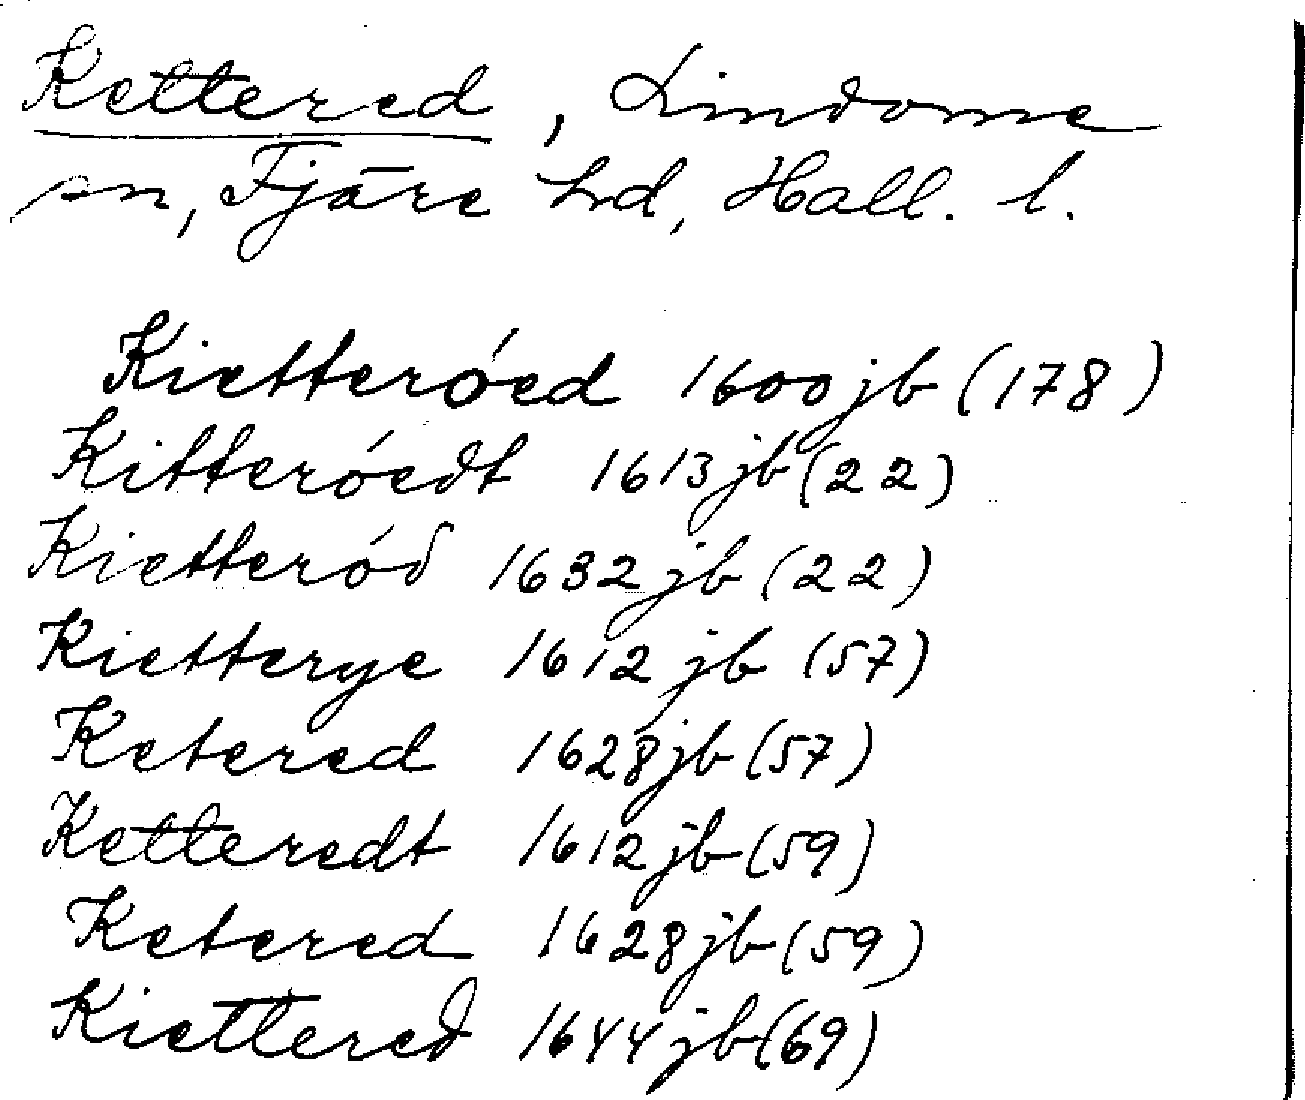 Kettered, Lindome
sn, Fjäre hd, Hall. l.
Kietteróed 1600 jb (178)
Kitteróedt 1613 jb (22)
Kietteród 1632 jb (22)
Kietterye 1612 jb (57)
Ketered 1628 jb (57)
Ketteredt 1612 jb (59)
Ketered 1628 jb (59)
Kiettered 1644 jb (69)